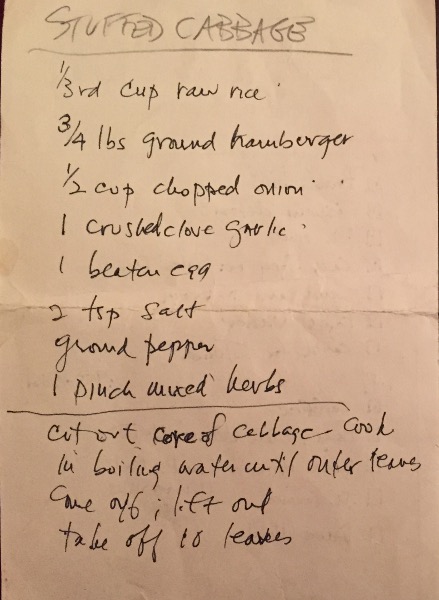 STUFFED CABBAGE
1/3rd cup raw rice
3/4 lbs ground hamberger
1/2 cup chopped onion
1 crushed clove garlic
1 beaten egg
2 tsp salt
ground pepper
1 pinch mixed herbs
cut out core of cabbage cook
in boiling water until outer leaves
come off; lift out
take off 10 leaves